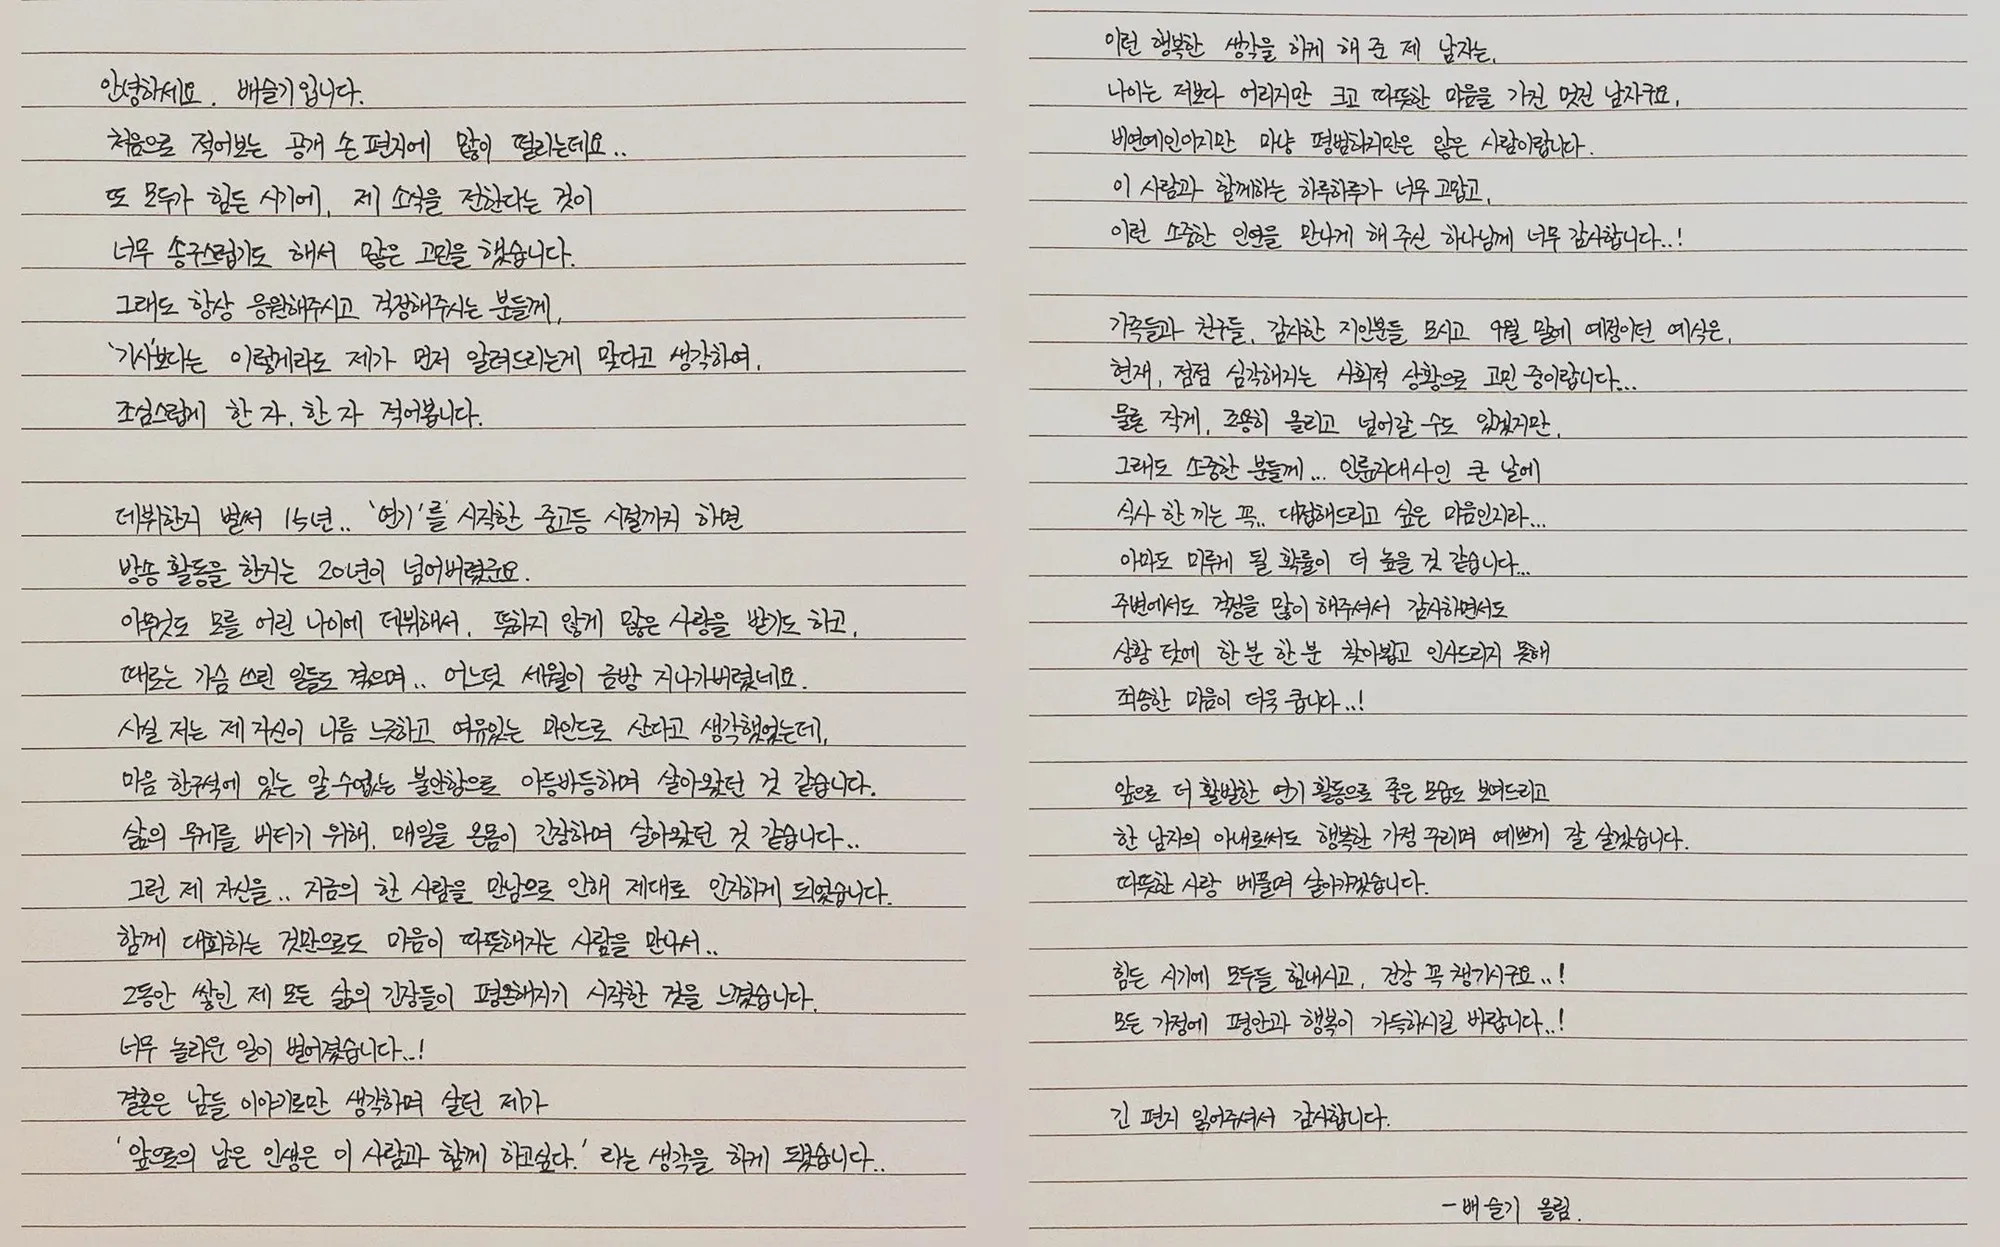 안녕하세요. 배슬기입니다.
처음으로 적어보는 공개 손 편지에 많이 떨리는데요..
또 모두가 힘든 시기에, 제 소식을 전한다는 것이
너무 송구스럽기도 해서 많은 고민을 했습니다.
그래도 항상 응원해주시고 걱정해주시는 분들께,
'기사'보다는 이렇게라도 제가 먼저 알려드리는게 맞다고 생각하여,
조심스럽게 한 자, 한 자 적어봅니다.
데뷔한지 벌써 15년.. '연기'를 시작한 중고등 시절까지 하면
방송 활동을 한지는 20년이 넘어버렸군요.
아무것도 모를 어린 나이에 데뷔해서, 뜻하지 않게 많은 사랑을 받기도 하고,
때로는 가슴 쓰린 일들도 겪으며.. 어느덧 세월이 금방 지나가버렸네요.
사실 저는 제 자신이 나름 느긋하고 여유있는 마인드로 산다고 생각했었는데,
마음 한구석에 있는 알 수 없는 불안함으로 아등바등하며 살아왔던 것 같습니다.
삶의 무게를 버티기 위해, 매일을 온몸이 긴장하며 살아왔던 것 같습니다..
그런 제 자신을.. 지금의 한 사람을 만남으로 인해 제대로 인지하게 되었습니다.
함께 대화하는 것만으로도 마음이 따뜻해지는 사람을 만나서..
그동안 쌓인 제 모든 삶의 긴장들이 평온해지기 시작한 것을 느꼈습니다.
너무 놀라운 일이 벌어졌습니다..!
결혼은 남들 이야기로만 생각하며 살던 제가
'앞으로의 남은 인생은 이 사람과 함께 하고싶다.' 라는 생각을 하게 됐습니다..
이런 행복한 생각을 하게 해 준 제 남자는,
나이는 저보다 어리지만 크고 따뜻한 마음을 가진 멋진 남자구요,
비연예인이지만 마냥 평범하지만은 않은 사람이랍니다.
이 사람과 함께하는 하루하루가 너무 고맙고,
이런 소중한 인연을 만나게 해 주신 하나님께 너무 감사합니다..!
가족들과 친구들, 감사한 지인분들 모시고 9월 말에 예정이던 예식은,
현재, 점점 심각해지는 사회적 상황으로 고민 중이랍니다...
물론 작게, 조용히 올리고 넘어갈 수도 있겠지만,
그래도 소중한 분들께... 인륜지대사인 큰 날에
식사 한 끼는 꼭.. 대접해드리고 싶은 마음인지라...
아마도 미루게 될 확률이 더 높을 것 같습니다...
주변에서도 걱정을 많이 해주셔서 감사하면서도
상황 탓에 한 분 한 분 찾아뵙고 인사드리지 못해
죄송한 마음이 더욱 큽니다..!
앞으로 더 활발한 연기 활동으로 좋은 모습도 보여드리고
한 남자의 아내로써도 행복한 가정 꾸리며 예쁘게 잘 살겠습니다.
따뜻한 사랑 베풀며 살아가겠습니다.
힘든 시기에 모두들 힘내시고, 건강 꼭 챙기시구요..!
모든 가정에 평안과 행복이 가득하시길 바랍니다..!
긴 편지 읽어주셔서 감사합니다.
- 배슬기 올림.